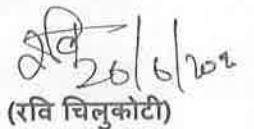 रवि
26/6/202
(रवि चिलुकोटी)